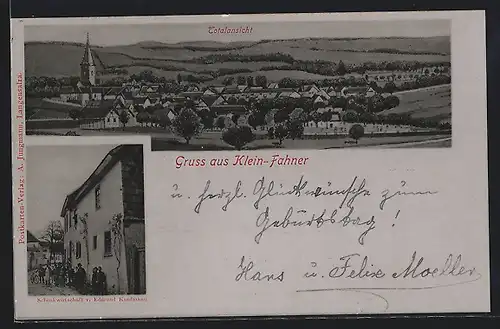 Totalansicht
Gruss aus Klein-Fahner
u. herzl. Glückwünsche zum
Geburtstag!
Hans u. Felix Moeller
Schenkwirtschaft v. Edmund
Postkarten-Verlag: A. Jungmann, Langensalza.